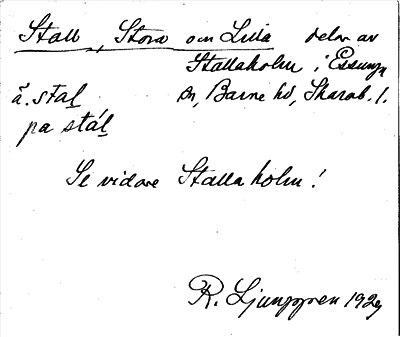 Stall, Stora och Lilla delar av
Stallaholm i Essunga
ä. stal sn, Barne hd, Skarab. l.
pa stál
Se vidare Stallaholm!
R. Ljunggren 1929